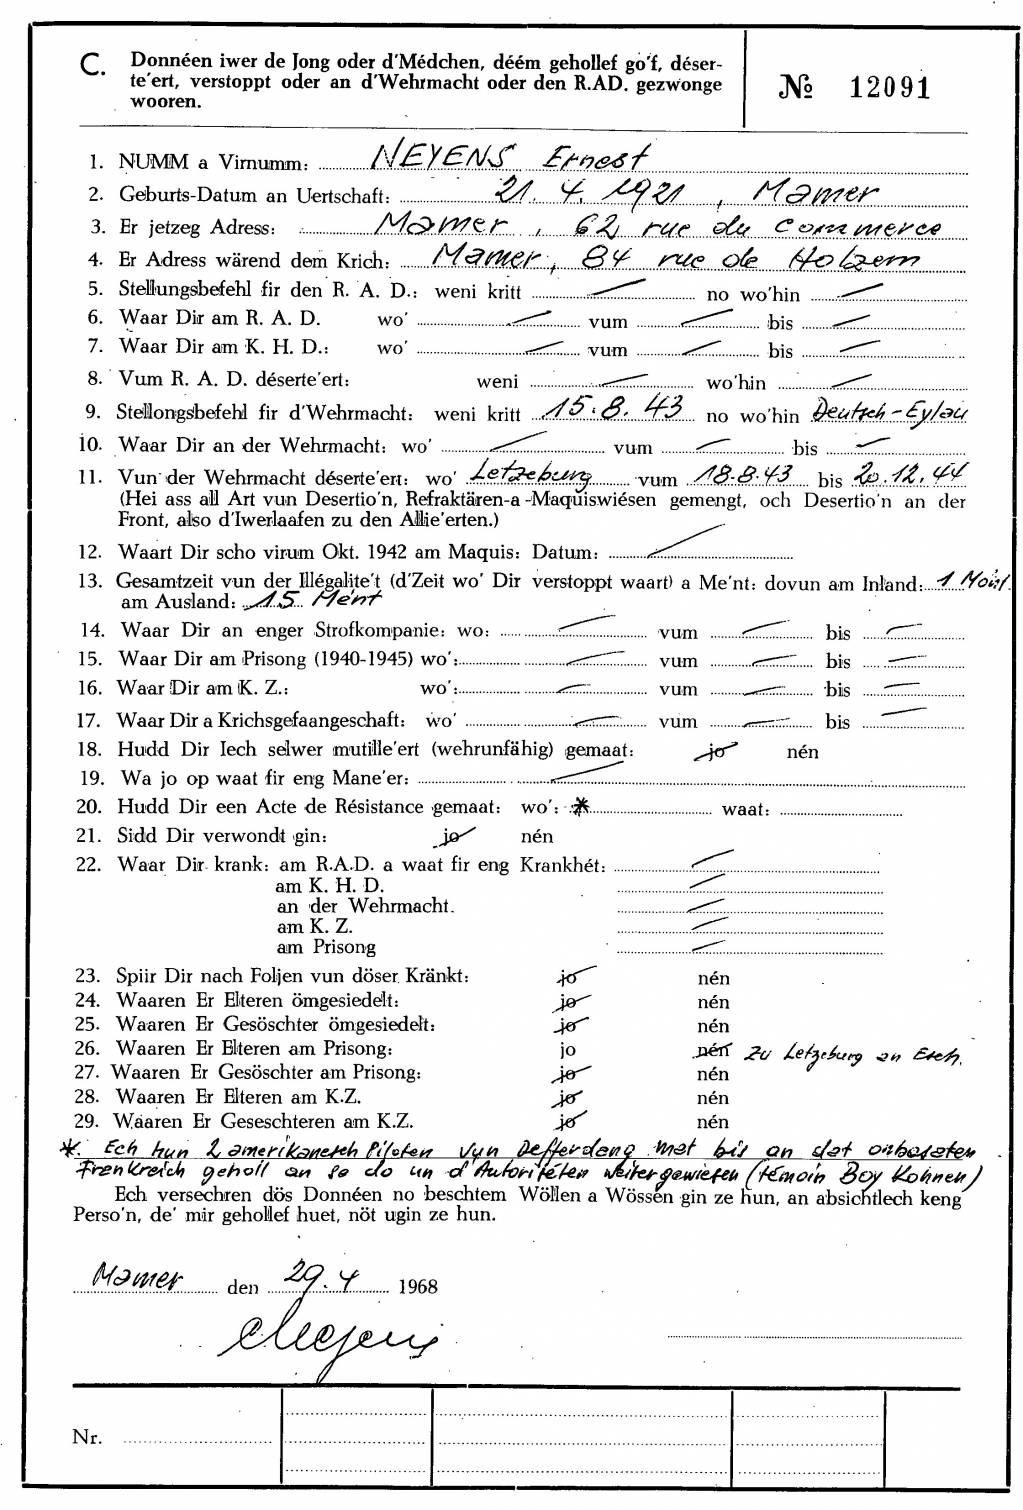 C. Donnéen iwer de Jong oder d'Médchen, déém gehollef go'f, déser-
te'ert, verstoppt oder an d'Wehrmacht oder den R.AD. gezwonge
wooren.
№ 12091
1. NUMM a Virnumm: NEYENS Ernest
2. Geburts-Datum an Uertschaft: 21. 4. 1921, Mamer
3. Er jetzeg Adress: Mamer, 62, rue du Commerce
4. Er Adress wärend dem Krich: Mamer, 84 rue de Holzem
5. Stellungsbefehl fir den R. A. D.: weni kritt — no wo'hin —
6. Waar Dir am R. A. D. wo' — vum — bis —
7. Waar Dir am K. H. D.: wo' — vum — bis —
8. Vum R. A. D. déserte'ert: weni — wo'hin —
9. Stellongsbefehl fir d'Wehrmacht: weni kritt 15.8.43 no wo'hin Deutsch-Eylau
10. Waar Dir an der Wehrmacht: wo' — vum — bis —
11. Vun der Wehrmacht déserte'ert: wo' Letzeburg vum 18.8.43 bis 20.12.44
(Hei ass all Art vun Desertio'n, Refraktären-a -Maquiswiésen gemengt, och Desertio'n an der
Front, also d'Iwerlaafen zu den Allie'erten.)
12. Waart Dir scho virum Okt. 1942 am Maquis: Datum: —
13. Gesamtzeit vun der Illégalite't (d'Zeit wo' Dir verstoppt waart) a Me'nt: dovun am Inland: 1
am Ausland: 15 Mént
14. Waar Dir an enger Strofkompanie: wo: — vum — bis —
15. Waar Dir am Prisong (1940-1945) wo': — vum — bis —
16. Waar Dir am K. Z.: wo': — vum — bis —
17. Waar Dir a Krichsgefaangeschaft: wo' — vum — bis —
18. Hudd Dir Iech selwer mutille'ert (wehrunfähig) gemaat: jo nén
19. Wa jo op waat fir eng Mane'er: —
20. Hudd Dir een Acte de Résistance gemaat: wo': * waat:
21. Sidd Dir verwondt gin: jo nén
22. Waar Dir krank: am R.A.D. a waat fir eng Krankhét: —
am K. H. D. —
an der Wehrmacht. —
am K. Z. —
am Prisong —
23. Spiir Dir nach Foljen vun döser Kränkt: jo nén
24. Waaren Er Elteren ömgesiedelt: jo nén
25. Waaren Er Gesöschter ömgesiedelt: jo nén
26. Waaren Er Elteren am Prisong: jo nén zu Letzeburg an Esch.
27. Waaren Er Gesöschter am Prisong: jo nén
28. Waaren Er Elteren am K.Z. jo nén
29. Waaren Er Geseschteren am K.Z. jo nén
*. Ech hun 2 amerikanesch Piloten vun Defferdang met bis an dat onbesaten
Frenkreich geholl an se do un d'Autoritéten weitergewiesen (témoin Boy Kohnen)
Ech versechren dös Donnéen no beschtem Wöllen a Wössen gin ze hun, an absichtlech keng
Perso'n, de' mir gehollef huet, nöt ugin ze hun.
Mamer den 29.4 1968
Neyens
Nr.